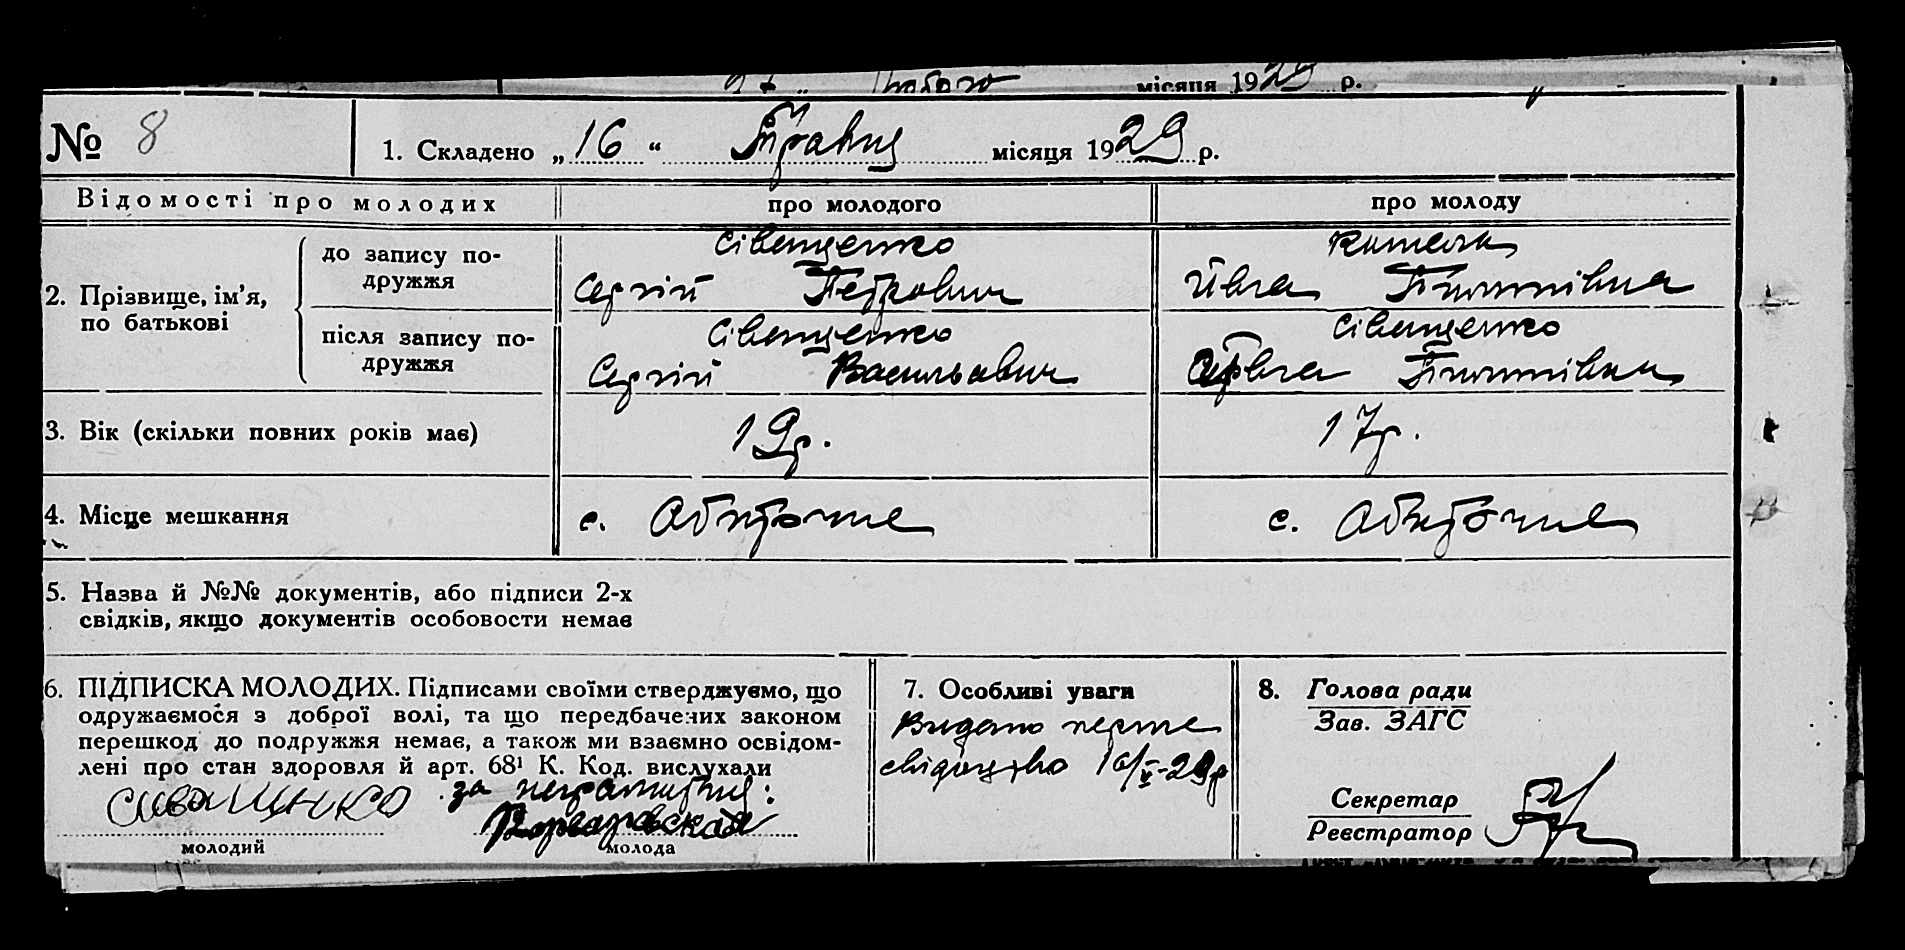 місяця 1929 р.
№ 8
1. Складено „ 16 “ Травня місяця 1929 р.
Відомості про молодих
про молодого
про молоду
2. Прізвище, ім’я, по батькові
до запису по-
дружжя
Сіващенко
Сергій Петрович
Івга Пилипівна
після запису по-
дружжя
Сіващенко
Сергій Васильович
Сіващенко
Пилипівна
3. Вік (скільки повних років має)
19р.
17р.
4. Місце мешкання
с. Обиточне
с. Обиточне
5. Назва й №№ документів, або підписи 2-х
свідків, якщо документів особовости немає
6. ПІДПИСКА МОЛОДИХ. Підписами своїми стверджуємо, що
одружаємося з доброї волі, та що передбачених законом
перешкод до подружжя немає, а також ми взаємно освідом-
лені про стан здоровля й арт. 68¹ К. Код. вислухали
Сиващнко за неграмотну:
молодий
молода
7. Особливі уваги
Видано перше
свідоцтво 16/V-29р
8. Голова ради
Зав. ЗАГС
Секретар
Реєстратор